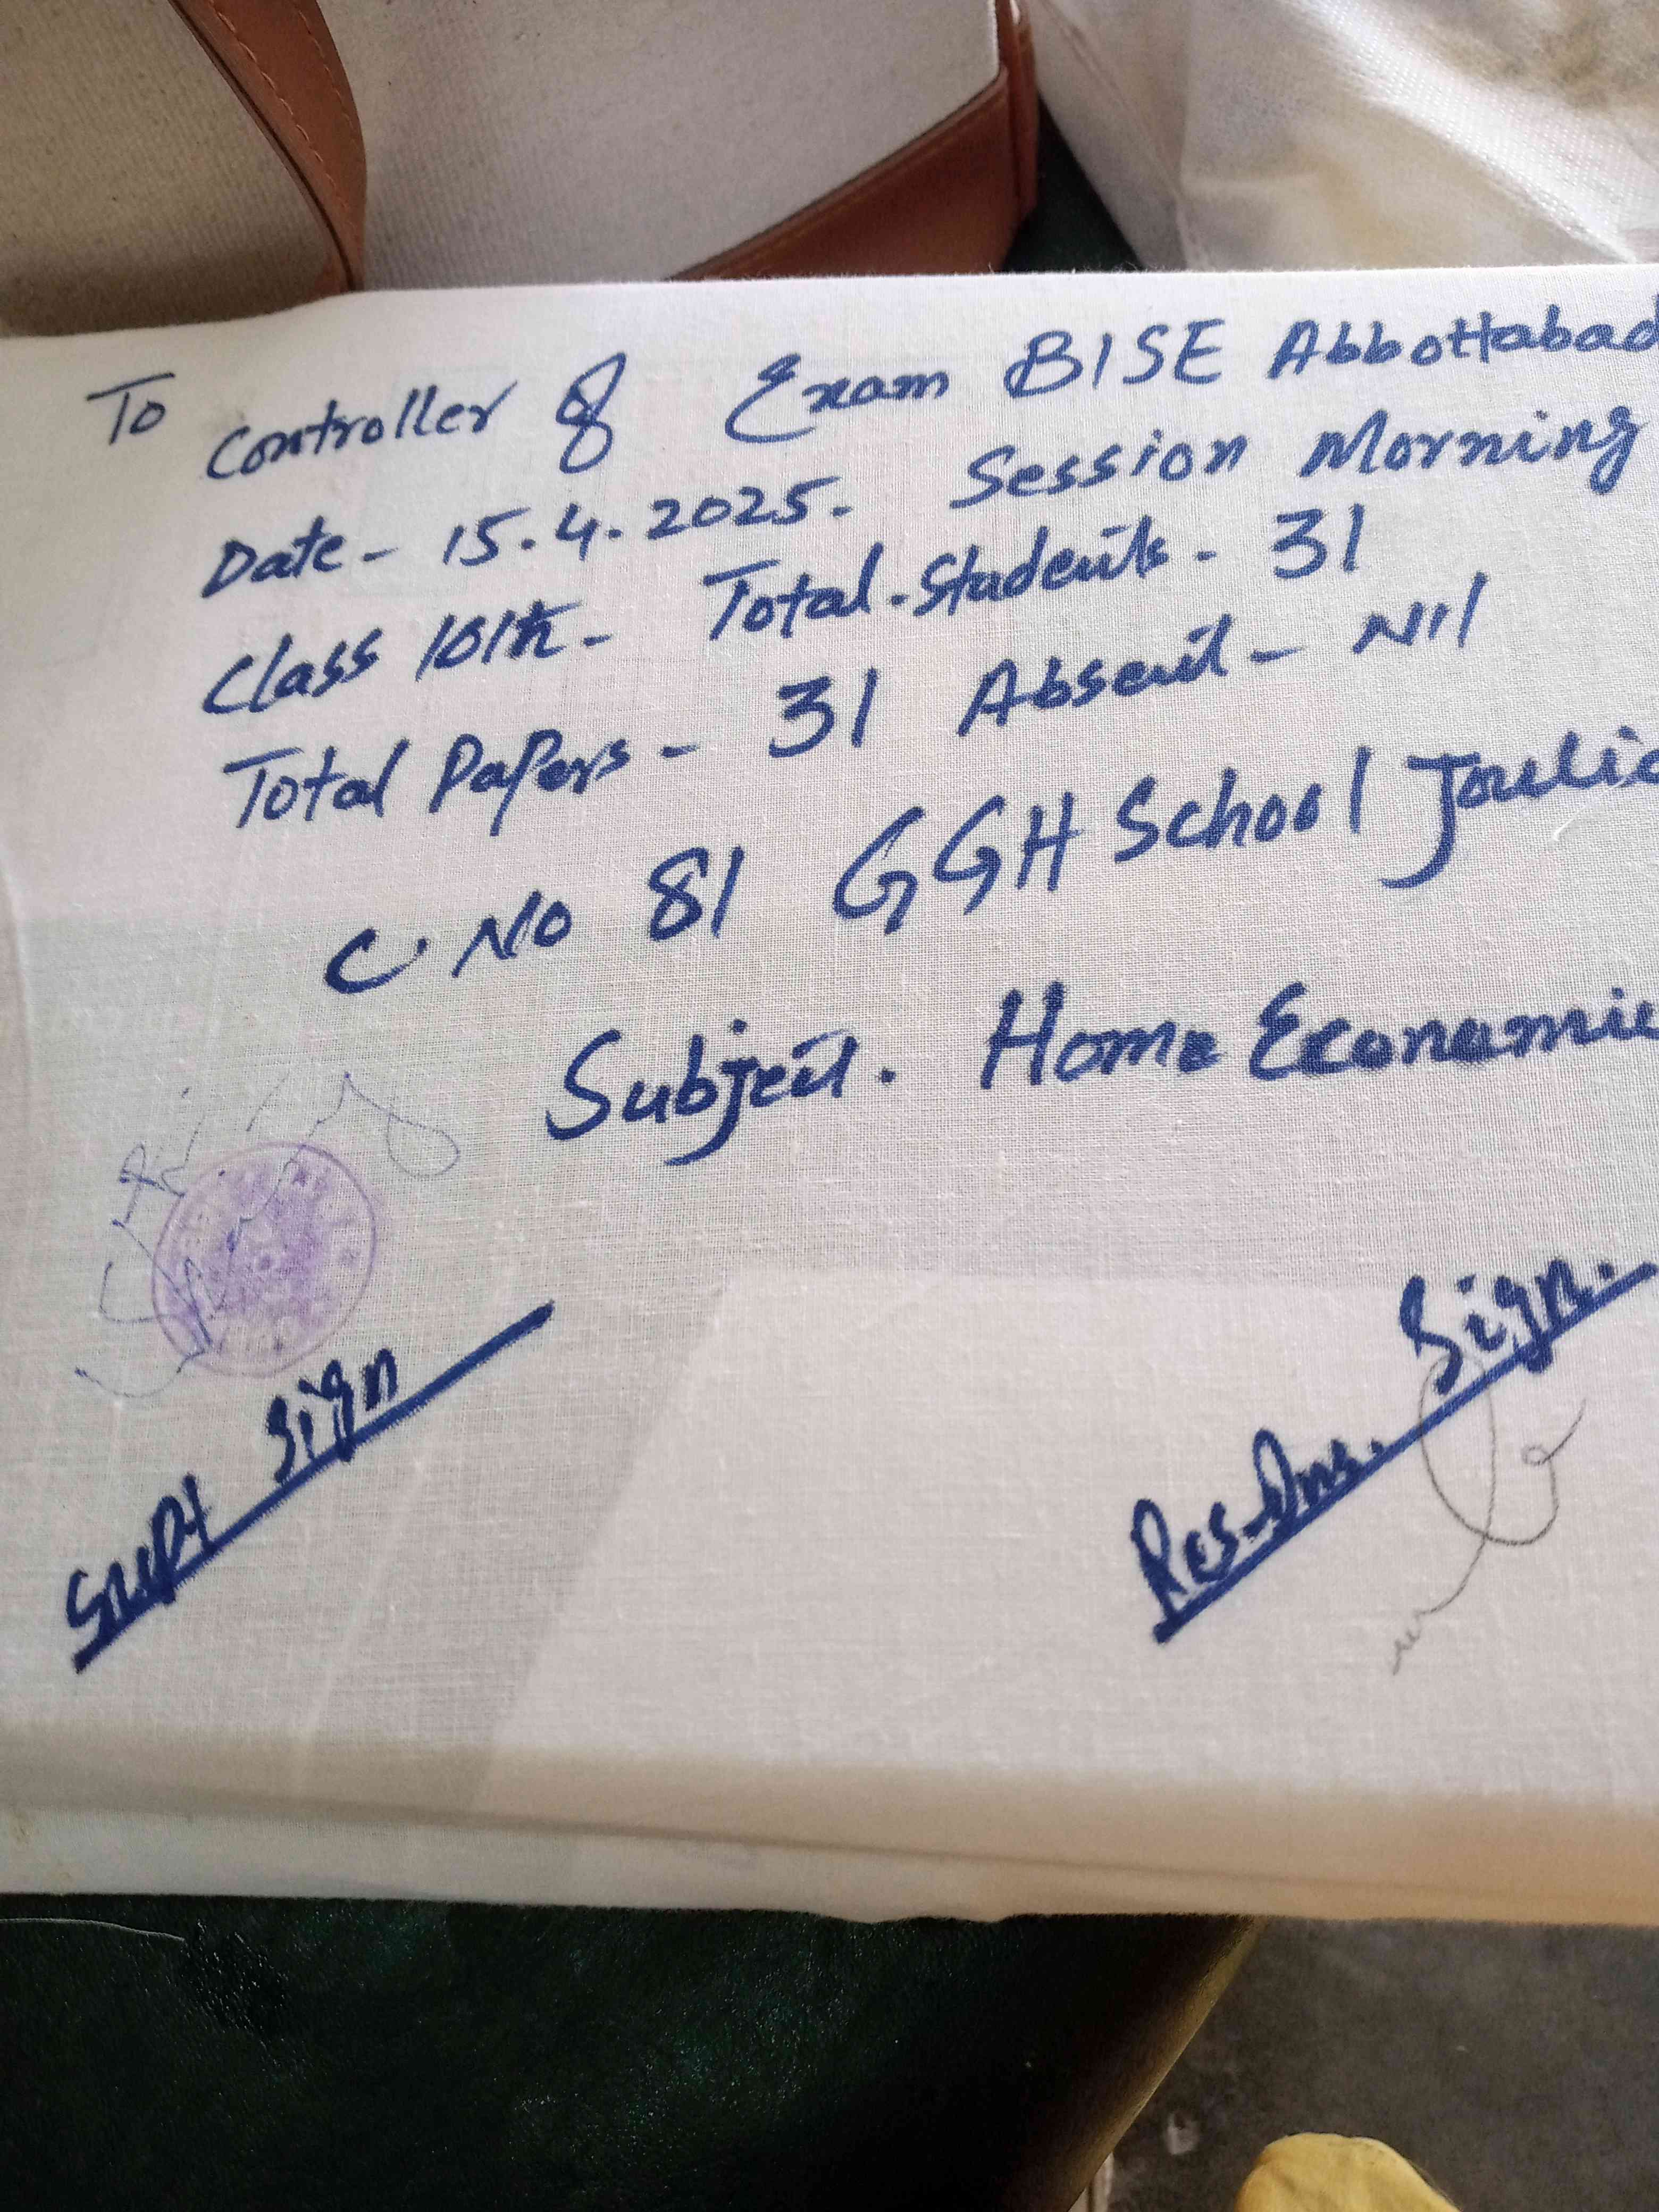 To
Controller of Exam BISE Abbottabad
Date - 15.4.2025. Session Morning
Class 10th - Total. Students - 31
Total Papers - 31 Absent - Nil
C. No 81 GGH School
Subject. Home Economic
Supt Sign
Res. Sign.